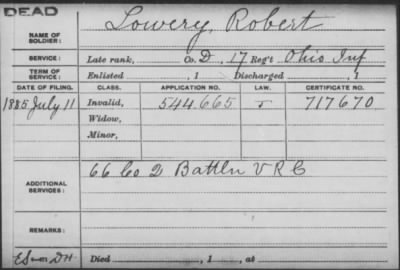 DEAD
NAME OF SOLDIER: Lowery, Robert
SERVICE: Late rank, Co. D, 17 Reg't Ohio Inf
TERM OF SERVICE: Enlisted , 1 Discharged , 1
DATE OF FILING. CLASS. APPLICATION NO. LAW. CERTIFICATE NO.
1885 July 11 Invalid, 544.665 717670
Widow,
Minor,
ADDITIONAL SERVICES: 66 Co 2 Battln V R C
REMARKS:
Died , 1 , at